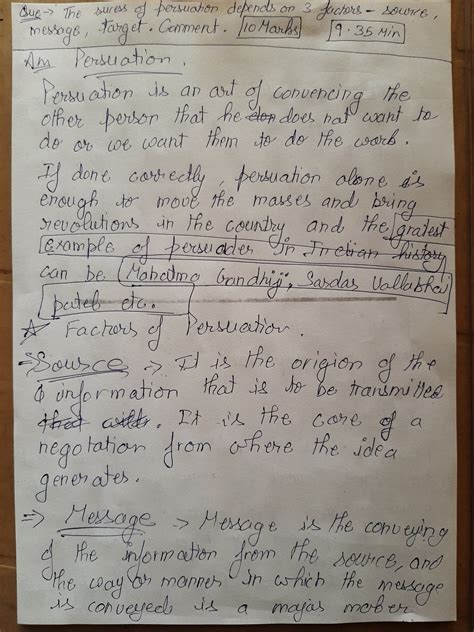 Que → The sucess of persuation depends on 3 factors – source,
message, target. Comment. 10 Marks 9.35 Min
Ans Persuation.
Persuation is an art of convencing the
other person that he does not want to
do or we want them to do the work.
If done correctly, persuation alone is
enough to move the masses and bring
revolutions in the country and the gratest
Example of persuader in Indian history
can be Mahatma Gandhiji, Sardar Vallabhai
patel etc.
☆ Factors of Persuation.
→ Source → It is the origion of the
information that is to be transmitted
It is the core of a
negotation from where the idea
generates.
⇒ Message → Message is the conveying
of the information from the source, and
the way or manner in which the message
is conveyed is a major